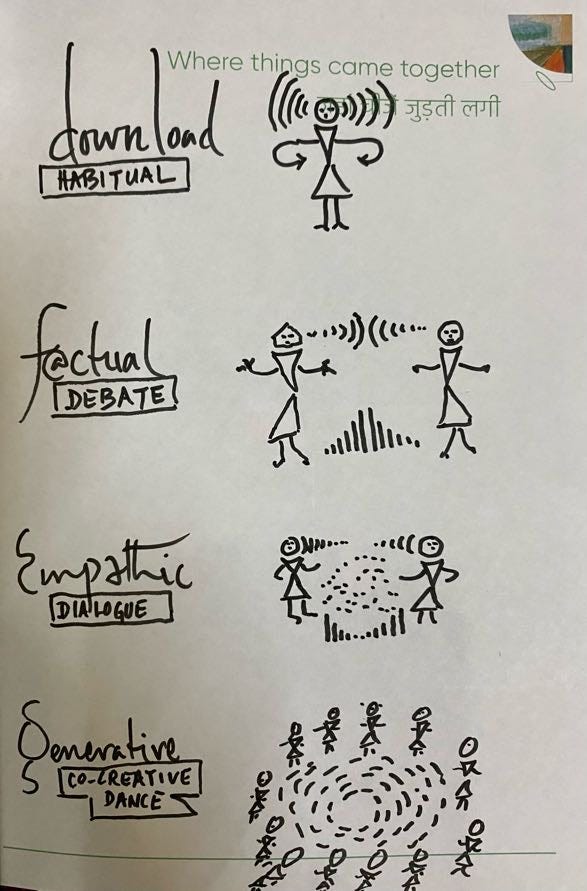 Where things came together
चीजें जुड़ती लगी
download
HABITUAL
f@ctual
DEBATE
Empathic
DIALOGUE
Generative
CO-CREATIVE
DANCE